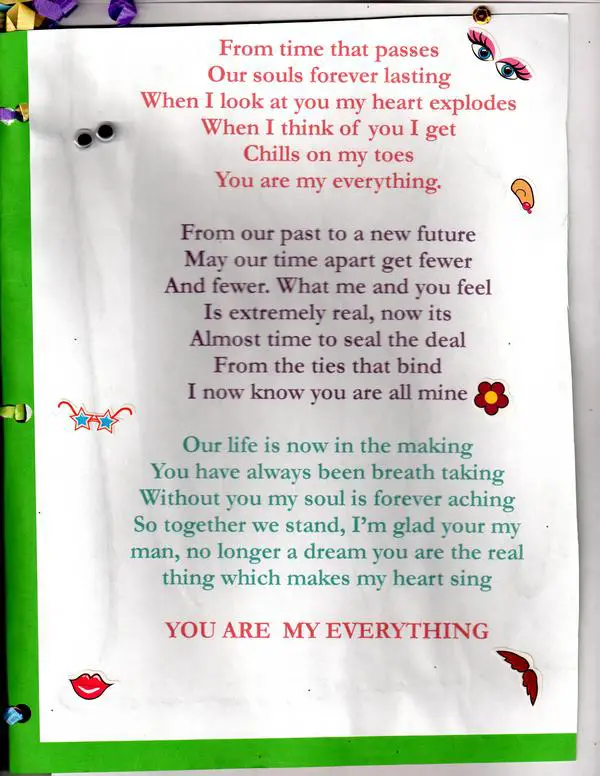 From time that passes
Our souls forever lasting
When I look at you my heart explodes
When I think of you I get
Chills on my toes
You are my everything.
From our past to a new future
May our time apart get fewer
And fewer. What me and you feel
Is extremely real, now its
Almost time to seal the deal
From the ties that bind
I now know you are all mine
Our life is now in the making
You have always been breath taking
Without you my soul is forever aching
So together we stand, I'm glad your my
man, no longer a dream you are the real
thing which makes my heart sing
YOU ARE MY EVERYTHING